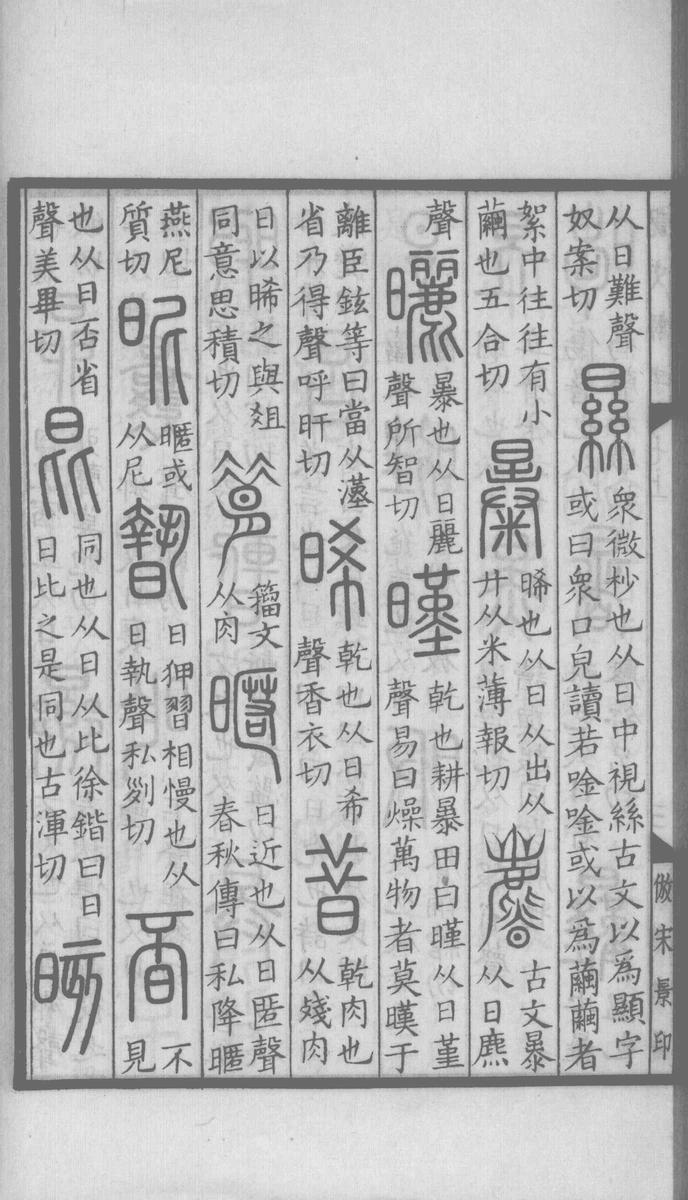 从日難聲奴案切㬎眾微杪也从日中視絲古文以為顯字或曰眾口皃讀若唫唫或以爲繭繭者
絮中往往有小繭也五合切㬥晞也从日从出从廾从米薄報切𣋴古文暴从日麃
聲曬暴也从日麗聲所智切暵乾也耕暴田曰暵从日堇聲易曰燥萬物者莫暵于
離臣鉉等曰當从漢省乃得聲呼旰切晞乾也从日希聲香衣切昔乾肉也从殘肉
日以晞之與俎同意思積切𦠡籒文从肉暱日近也从日匿聲春秋傳曰私降暱
燕尼質切昵暱或从尼暬日狎習相慢也从日執聲私列切㫘不見
也从日否省聲美畢切昆同也从日从比徐鍇曰日日比之是同也古渾切晐
倣宋景印